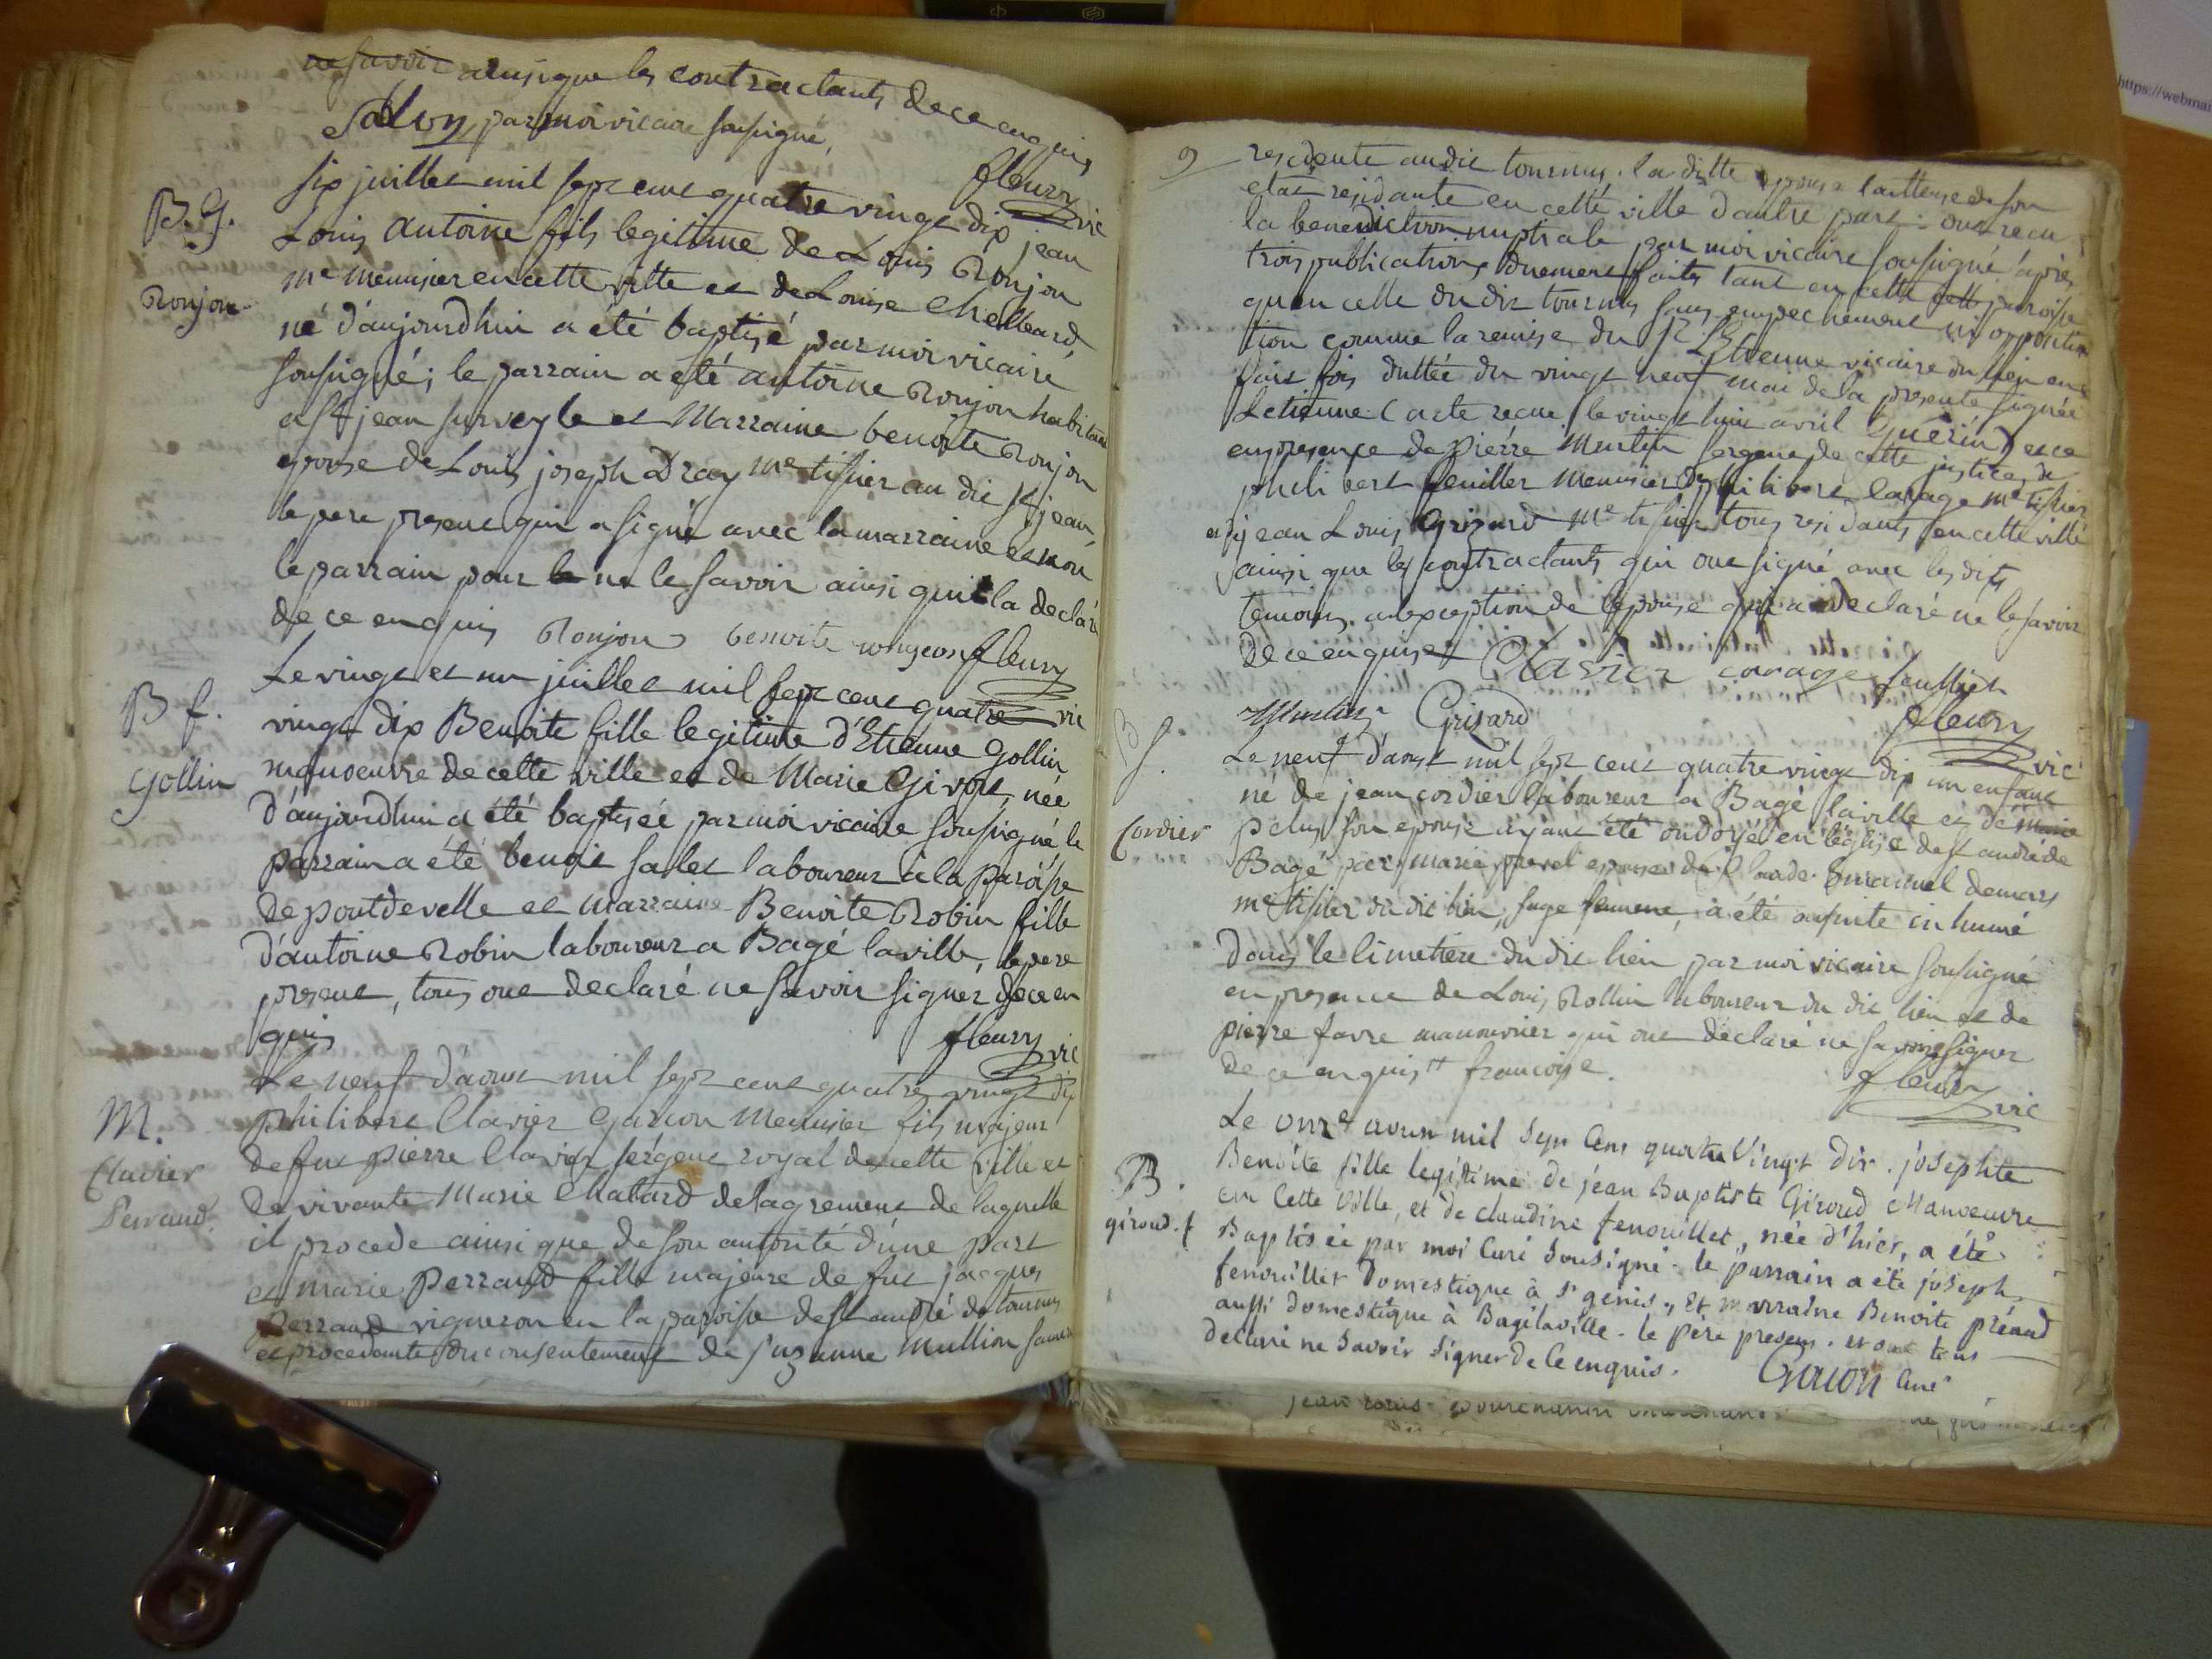 ne savoir ainsi que les contractants de ce enquis
par moi vicaire sousigné,
fleury vic
B. G.
Ronjon
six juillet mil sept cent quatre vingt dix jean
Louis antoine fils legitime de Louis Ronjon
me menusier en cette ville et de Louise Chellard
né d'aujourdhui a été baptisé par moi vicaire
sousigné; le parrain a été antoine Ronjon habitant
a st jean sur veyle et Marraine benoite Ronjon
epouse de Louis joseph Dray me tissier au dit st jean,
le pere present qui a signé avec la marraine et non
le parrain pour ne le savoir ainsi qu'il la declaré
de ce enquis Ronjon benoite rongeon fleury
vic
B f.
Gollin
Le vingt et un juillet mil sept cent quatre
vingt dix Benoite fille legitime d'Etienne Gollin
manoeuvre de cette ville et de Marie Givord née
d'aujourdhui a été baptisée par moi vicaire sousigné le
parrain a été benoit salet laboureur a la paroisse
de pontdevelle et marraine Benoite Robin fille
d'antoine Robin laboureur a Bagé laville, le pere
present, tous ont declaré ne savoir signer de ce en
quis
fleury vic
M.
Clavier
Perraud
Le neuf d'aoust mil sept cent quatre vingt dix
philibert Clavier Garcon Menusier fils majeur
de fut pierre Clavier sergent royal de cette ville et
de vivante Marie Chatard de lagrement de laquelle
il procede ainsi que de son autorité d'une part
et marie Perraud fille majeure de fut jacques
Perraud vigneron en la paroisse de st andré de tournus
et procedante du consentement de suzanne Mullion sa mere
9
residente audit tournus. la ditte epouse de son
etat residante en cette ville d'autre part: ont recu
la benediction nuptiale par moi vicaire sousigné après
trois publications duement faites tant en cette paroisse
qu'en celle du dit tournus sans empechement ni opposition
tion comme la remise du sr Letienne vicaire du lieu en
fait foi dattée du vingt neuf mai de la presente signée
Letienne (acte recue le vingt huit avril Guerin) et ce
en presence de pierre Merlin sergent de cette justice, de
philibert feuillet Menusier de philibert carage me tissier
et de jean Louis Grisard me tissier tous residants en cette ville
ainsi que les contractants qui ont signé avec les dits
temoins a exception de l'epouse qui a declaré ne le savoir
de ce enquise Clavier carage feuillet
Merlin Grisard
fleury
vic
B
f.
Cordier
Le neuf d'aoust mil sept cent quatre vingt dix un enfant
né de jean cordier laboureur a Bagé laville et de marie
son epouse ayant été ondoyé en l'église de st andré de
Bagé par marie epouse de Claude Emanuel demars
me tissier du dit lieu, sage femme, a été ensuite inhumé
dans le cimetière du dit lieu par moi vicaire sousigné
en presence de Louis Rollin laboureur du dit lieu et de
pierre favre manouvrier qui ont declaré ne savoir signer
de ce enquis francoise.
fleury
vic
B.
giroud. f
Le onze aoust mil Sept Cent quatre Vingt dix. josephte
Benoite fille legitime de jean Baptiste Giroud Manoeuvre
en Cette Ville, et de claudine fenouillet, née d'hier, a été
Baptisée par moi Curé Sousigné. le parrain a été joseph
fenouillet Domestique à st genis, et marraine Benoite préaud
aussi domestique à Bagélaville. le père present. et ont tous
declaré ne Savoir Signer de Ce enquis. Curé